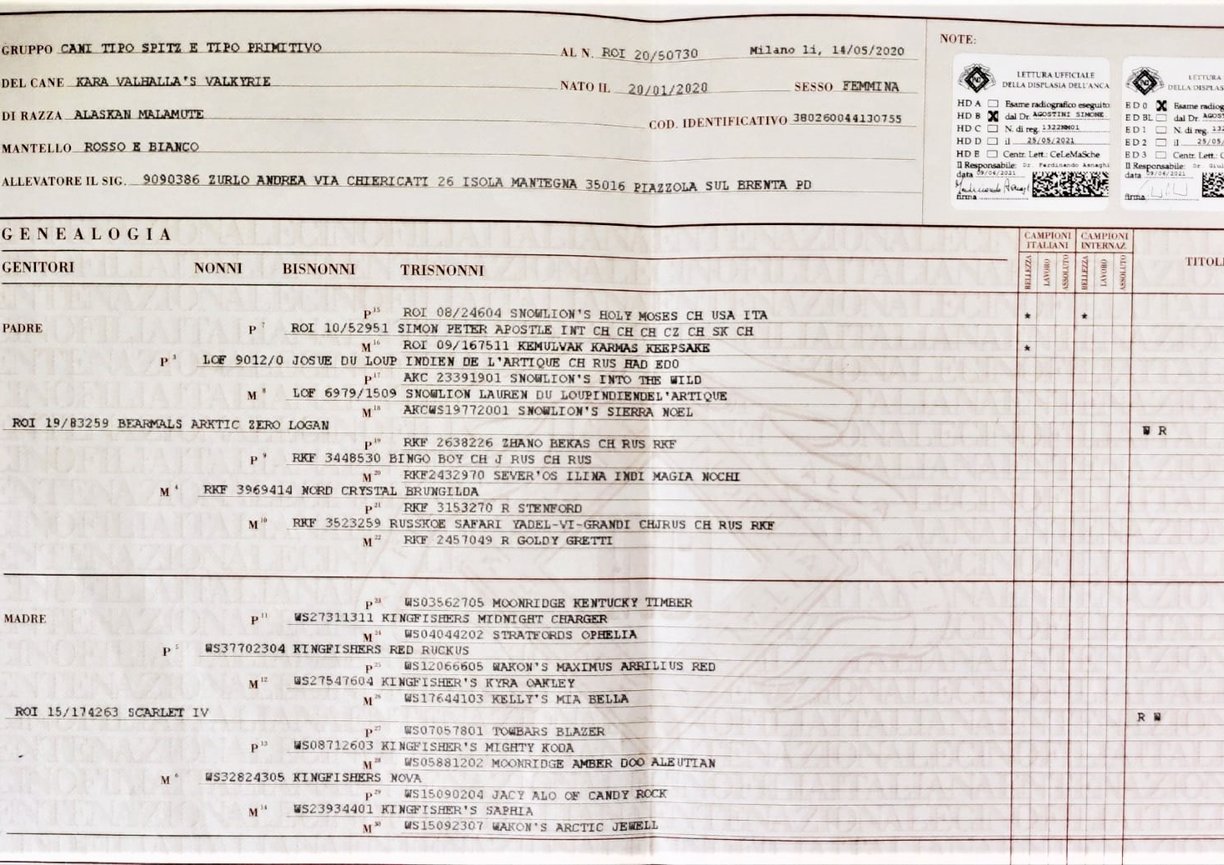 GRUPPO CANI TIPO SPITZ E TIPO PRIMITIVO AL N. ROI 20/50730 Milano li, 14/05/2020
DEL CANE KARA VALHALLA'S VALKYRIE NATO IL 20/01/2020 SESSO FEMMINA
DI RAZZA ALASKAN MALAMUTE COD. IDENTIFICATIVO 380260044130755
MANTELLO ROSSO E BIANCO
ALLEVATORE IL SIG. 9090386 ZURLO ANDREA VIA CHIERICATI 26 ISOLA MANTEGNA 35016 PIAZZOLA SUL BRENTA PD
NOTE:
LETTURA UFFICIALE
DELLA DISPLASIA DELL'ANCA
HD A Esame radiografico eseguito
HD B X dal Dr. AGOSTINI SIMONE
HD C N. di reg. 1322NM01
HD D il 25/05/2021
HD E Centr. Lett.: CeLeMaSche
Il Responsabile: Dr. Ferdinando Asnaghi
data 09/06/2021
firma
LETTURA
DELLA DISPLAS
ED 0 X Esame radiog
ED BL dal Dr. AGOST
ED 1 N. di reg. 132
ED 2 il 25/05/
ED 3 Centr. Lett.: C
Il Responsabile: Dr. Giul
data 09/06/2021
firma
GENEALOGIA
GENITORI NONNI BISNONNI TRISNONNI
CAMPIONI ITALIANI CAMPIONI INTERNAZ
BELLEZZA LAVORO ASSOLUTO BELLEZZA LAVORO ASSOLUTO
TITOLI
P 15 ROI 08/24604 SNOWLION'S HOLY MOSES CH USA ITA * *
PADRE P 7 ROI 10/52951 SIMON PETER APOSTLE INT CH CH CH CZ CH SK CH
M 16 ROI 09/167511 KEMULVAK KARMAS KEEPSAKE *
P 3 LOF 9012/0 JOSUE DU LOUP INDIEN DE L'ARTIQUE CH RUS HAD EDO
P 17 AKC 23391901 SNOWLION'S INTO THE WILD
M 8 LOF 6979/1509 SNOWLION LAUREN DU LOUPINDIENDEL'ARTIQUE
M 18 AKCWS19772001 SNOWLION'S SIERRA NOEL
ROI 19/83259 BEARMALS ARKTIC ZERO LOGAN W R
P 19 RKF 2638226 ZHANO BEKAS CH RUS RKF
P 9 RKF 3448530 BINGO BOY CH J RUS CH RUS
M 20 RKF2432970 SEVER'OS ILINA INDI MAGIA NOCHI
M 4 RKF 3969414 NORD CRYSTAL BRUNGILDA
P 21 RKF 3153270 R STENFORD
M 10 RKF 3523259 RUSSKOE SAFARI YADEL-VI-GRANDI CHJRUS CH RUS RKF
M 22 RKF 2457049 R GOLDY GRETTI
P 23 WS03562705 MOONRIDGE KENTUCKY TIMBER
MADRE P 11 WS27311311 KINGFISHERS MIDNIGHT CHARGER
M 24 WS04044202 STRATFORDS OPHELIA
P 5 WS37702304 KINGFISHERS RED RUCKUS
P 25 WS12066605 WAKON'S MAXIMUS ARRILIUS RED
M 12 WS27547604 KINGFISHER'S KYRA OAKLEY
M 26 WS17644103 KELLY'S MIA BELLA
ROI 15/174263 SCARLET IV R W
P 27 WS07057801 TOWBARS BLAZER
P 13 WS08712603 KINGFISHER'S MIGHTY KODA
M 28 WS05881202 MOONRIDGE AMBER DOO ALEUTIAN
M 6 WS32824305 KINGFISHERS NOVA
P 29 WS15090204 JACY ALO OF CANDY ROCK
M 14 WS23934401 KINGFISHER'S SAPHIA
M 30 WS15092307 WAKON'S ARCTIC JEWELL